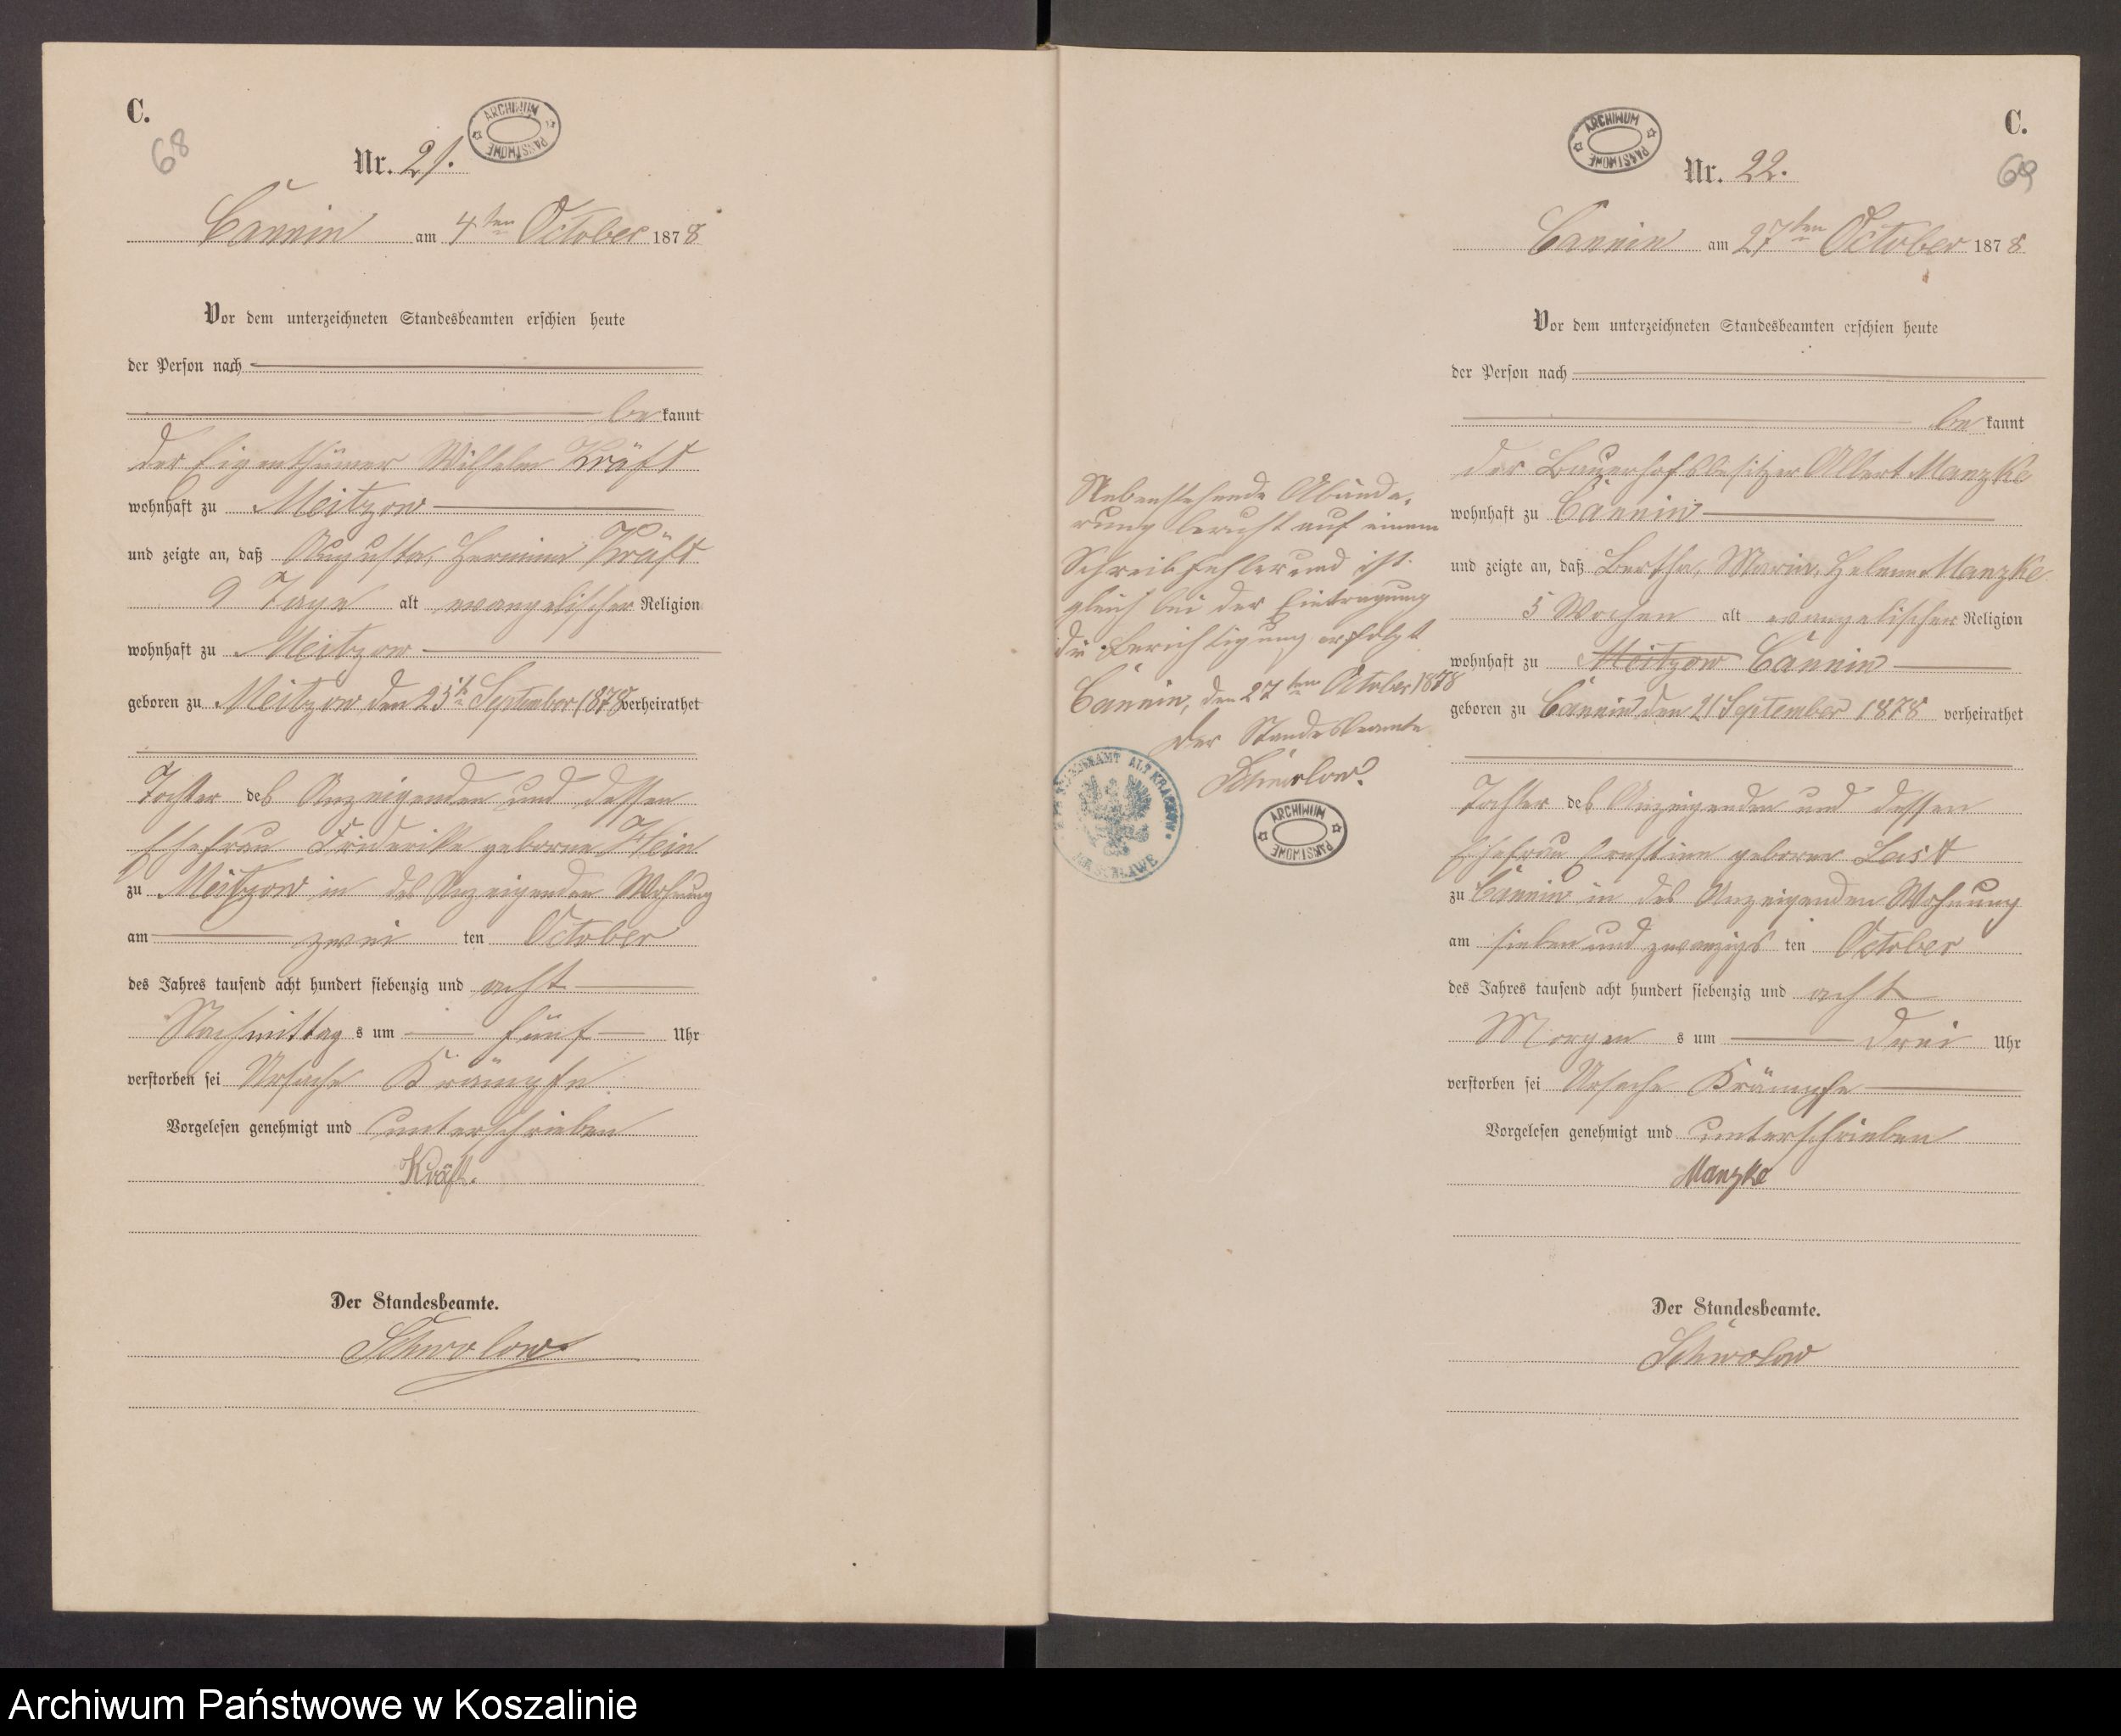 C.
68
ARCHIWUM PAŃSTWOWE
Nr. 21.
Cannin am 4ten October 1878
Vor dem unterzeichneten Standesbeamten erschien heute
der Person nach
bekannt
der Eigenthümer Wilhelm Kräft
wohnhaft zu Meitzow
und zeigte an, daß Auguste, Hermine Kräft
9 Tage alt evangelischer Religion
wohnhaft zu Meitzow
geboren zu Meitzow den 23ten September 1878 verheirathet
Tochter des Anzeigenden und dessen
Ehefrau Friderike geborene Hein
zu Meitzow in des Anzeigenden Wohnung
am zwei ten October
des Jahres tausend acht hundert siebenzig und acht
Nachmittag s um fünf Uhr
verstorben sei Ursache Krämpfe
Vorgelesen genehmigt und unterschrieben
Kräft.
Der Standesbeamte.
Schwolow
Nebenstehende Abände-
rung beruht auf einem
Schreibfehler und ist
gleich bei der Eintragung
die Berichtigung erfolgt
Cannin, den 27ten October 1878
Der Standesbeamte
Schwolow
STANDESAMT ALT KRAKOW
KR. SCHLAWE
ARCHIWUM PAŃSTWOWE
ARCHIWUM PAŃSTWOWE
C.
69
Nr. 22.
Cannin am 27ten October 1878
Vor dem unterzeichneten Standesbeamten erschien heute
der Person nach
bekannt
der Bauerhofsbesitzer Albert Manzke
wohnhaft zu Cannin
und zeigte an, daß Bertha, Marie, Helene Manzke
5 Wochen alt evangelischer Religion
wohnhaft zu Meitzow Cannin
geboren zu Cannin den 21 September 1878 verheirathet
Tochter des Anzeigenden und dessen
Ehefrau Ernstine geborene Last
zu Cannin in des Anzeigenden Wohnung
am sieben und zwanzigs ten October
des Jahres tausend acht hundert siebenzig und acht
Morgen s um drei Uhr
verstorben sei Ursache Krämpfe
Vorgelesen genehmigt und unterschrieben
Manzke
Der Standesbeamte.
Schwolow
Archiwum Państwowe w Koszalinie